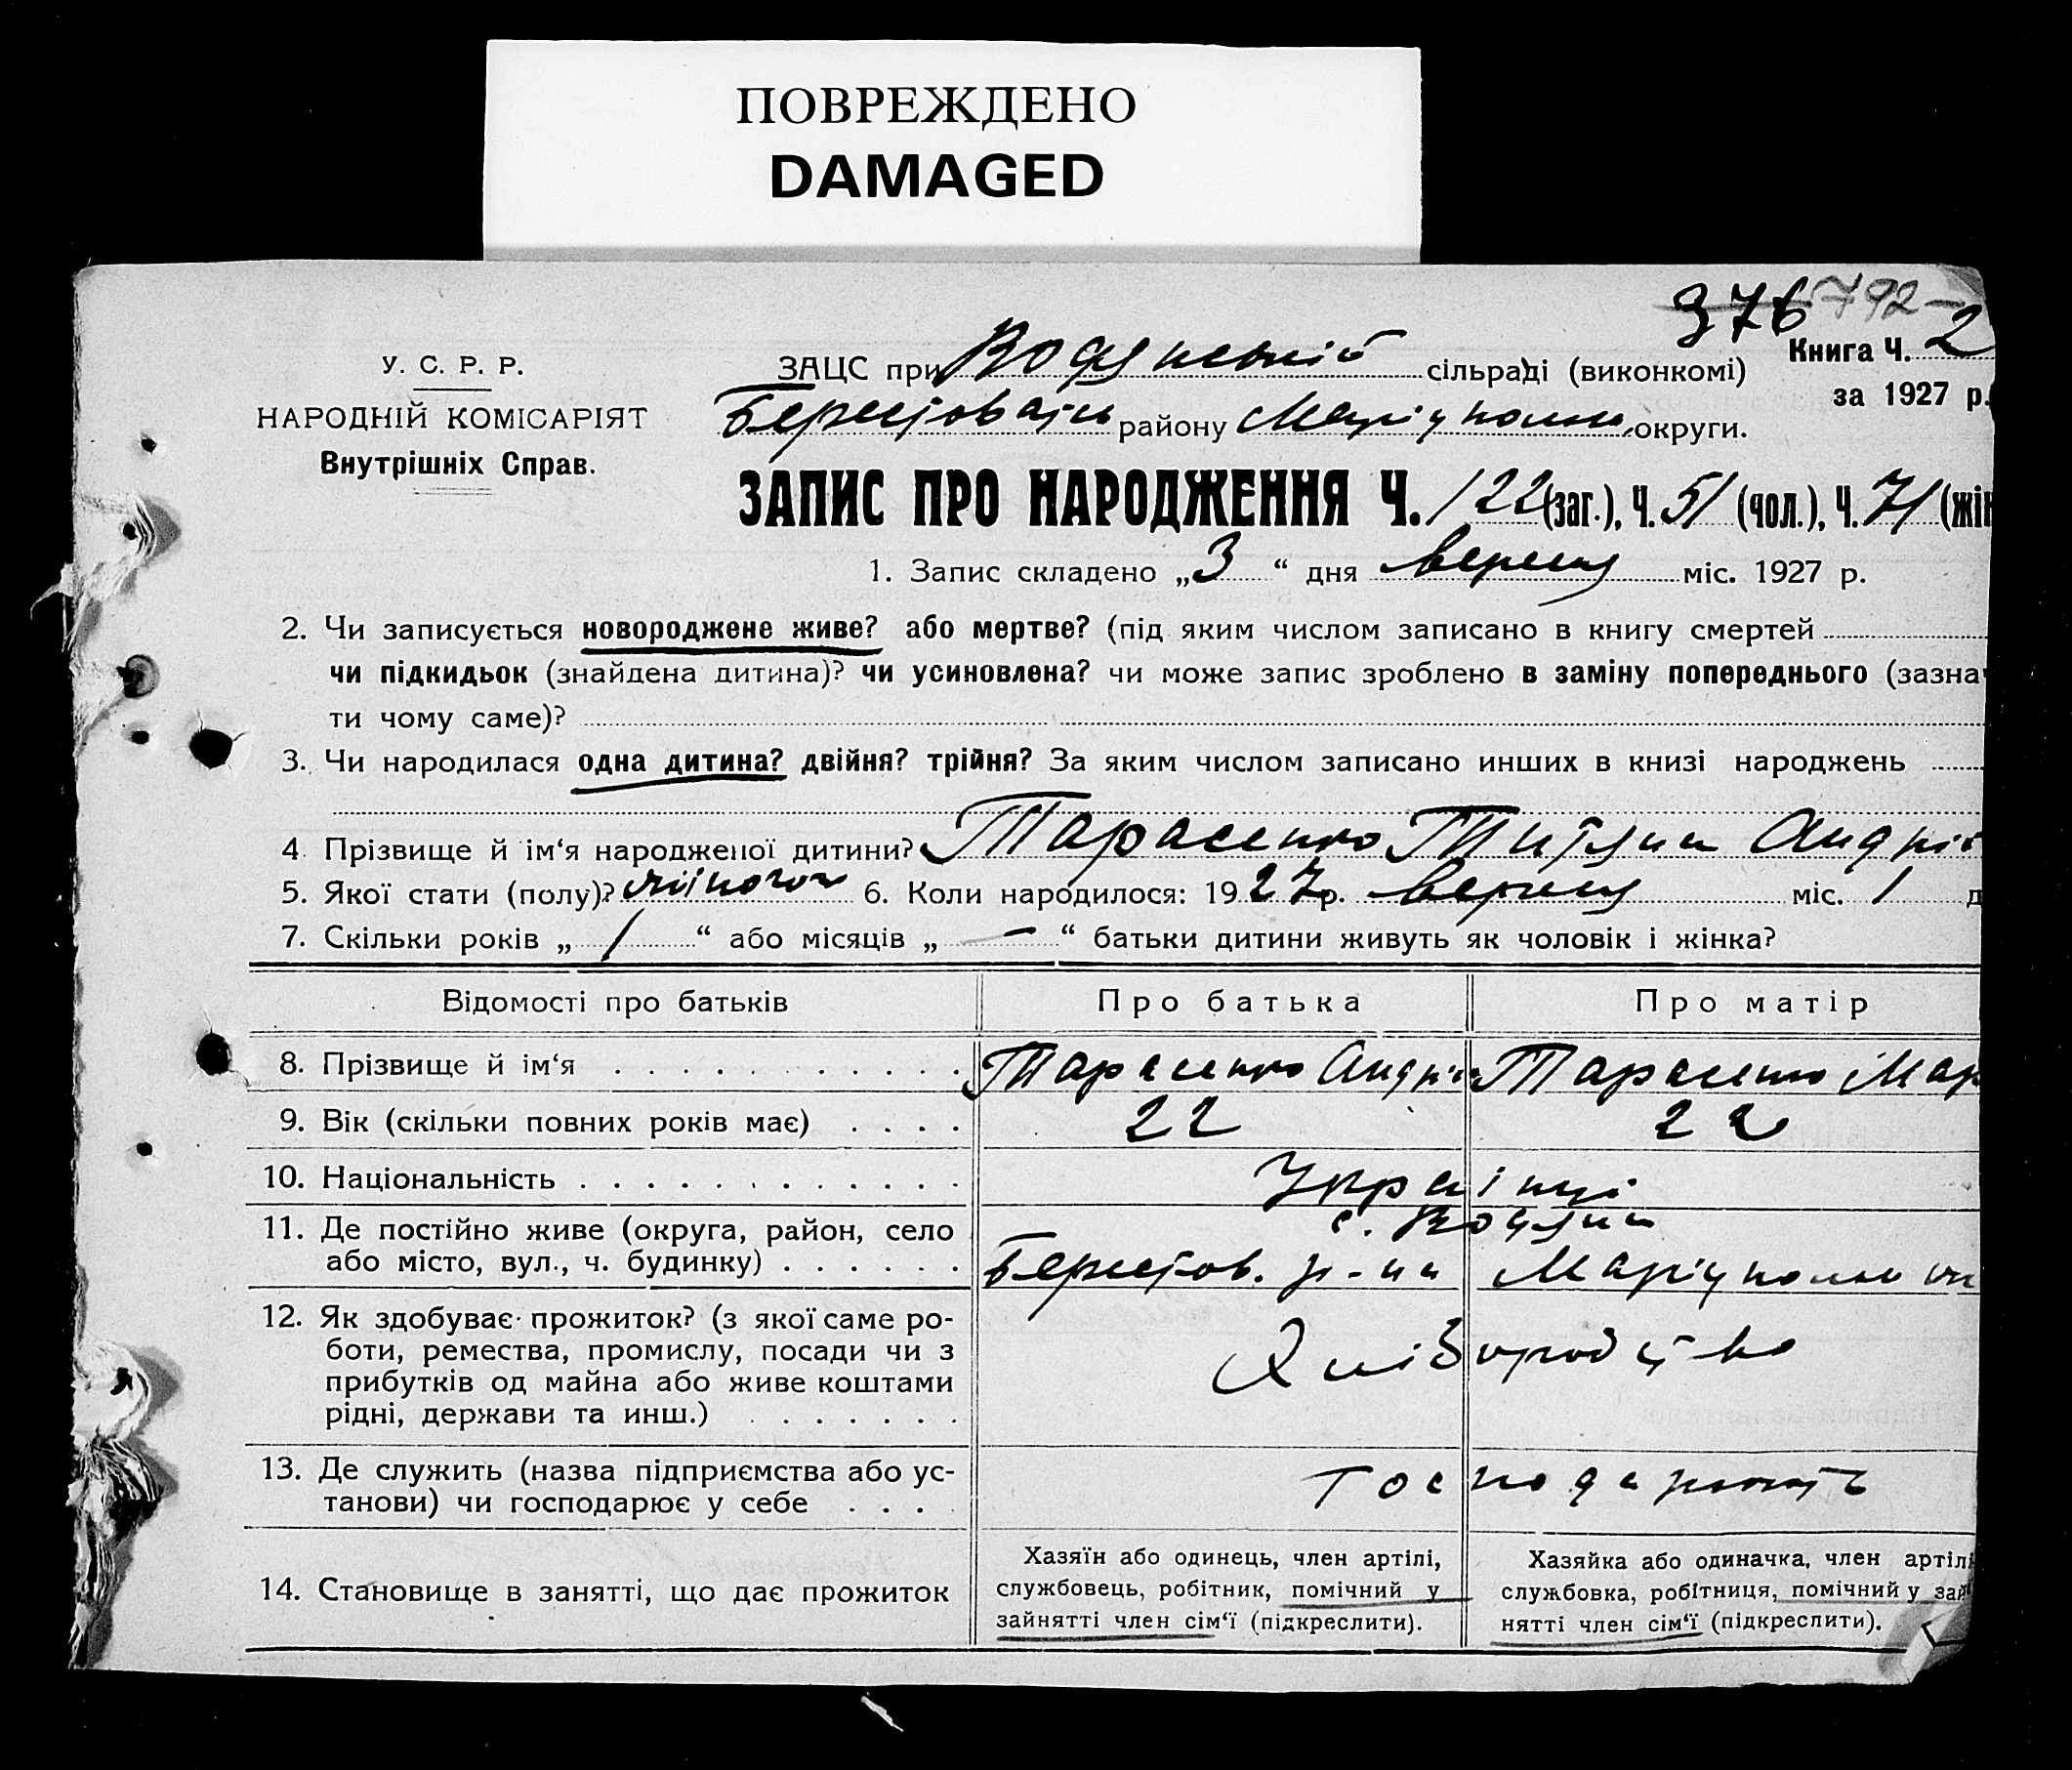 ПОВРЕЖДЕНО
DAMAGED
376 792-
Книга Ч. 2
за 1927 р.
У. С. Р. Р.
НАРОДНІЙ КОМІСАРІЯТ
Внутрішніх Справ.
ЗАЦС при сільраді (виконкомі)
району округи.
ЗАПИС ПРО НАРОДЖЕННЯ Ч. 122 (заг.), Ч. 51 (чол.), Ч. 71 (жін
1. Запис складено „3“ дня вересня міс. 1927 р.
2. Чи записується новороджене живе? або мертве? (під яким числом записано в книгу смертей
чи підкидьок (знайдена дитина)? чи усиновлена? чи може запис зроблено в заміну попереднього (зазна
ти чому саме)?
3. Чи народилася одна дитина? двійня? трійня? За яким числом записано инших в книзі народжень
4. Прізвище й ім‘я народженої дитини? Тарасенко
5. Якої стати (полу)? жіночої 6. Коли народилося: 1927 р. вересня міс. 1 д
7. Скільки років „ 1 “ або місяців „ — “ батьки дитини живуть як чоловік і жінка?
Відомості про батьків Про батька Про матір
8. Прізвище й ім‘я Тарасенко Андрій Тарасенко Мар
9. Вік (скільки повних років має) 22 22
10. Національність Українці
11. Де постійно живе (округа, район, село
або місто, вул., ч. будинку) Берестов. р-на
12. Як здобуває прожиток? (з якої саме ро-
боти, ремества, промислу, посади чи з
прибутків од майна або живе коштами
рідні, держави та инш.) Хліборобство
13. Де служить (назва підприємства або ус-
танови) чи господарює у себе Господарюють
14. Становище в занятті, що дає прожиток
Хазяїн або одинець, член артілі,
службовець, робітник, помічний у
зайнятті член сім‘ї (підкреслити).
Хазяйка або одиначка, член артілі
службовка, робітниця, помічний у зай
нятті член сім‘ї (підкреслити).